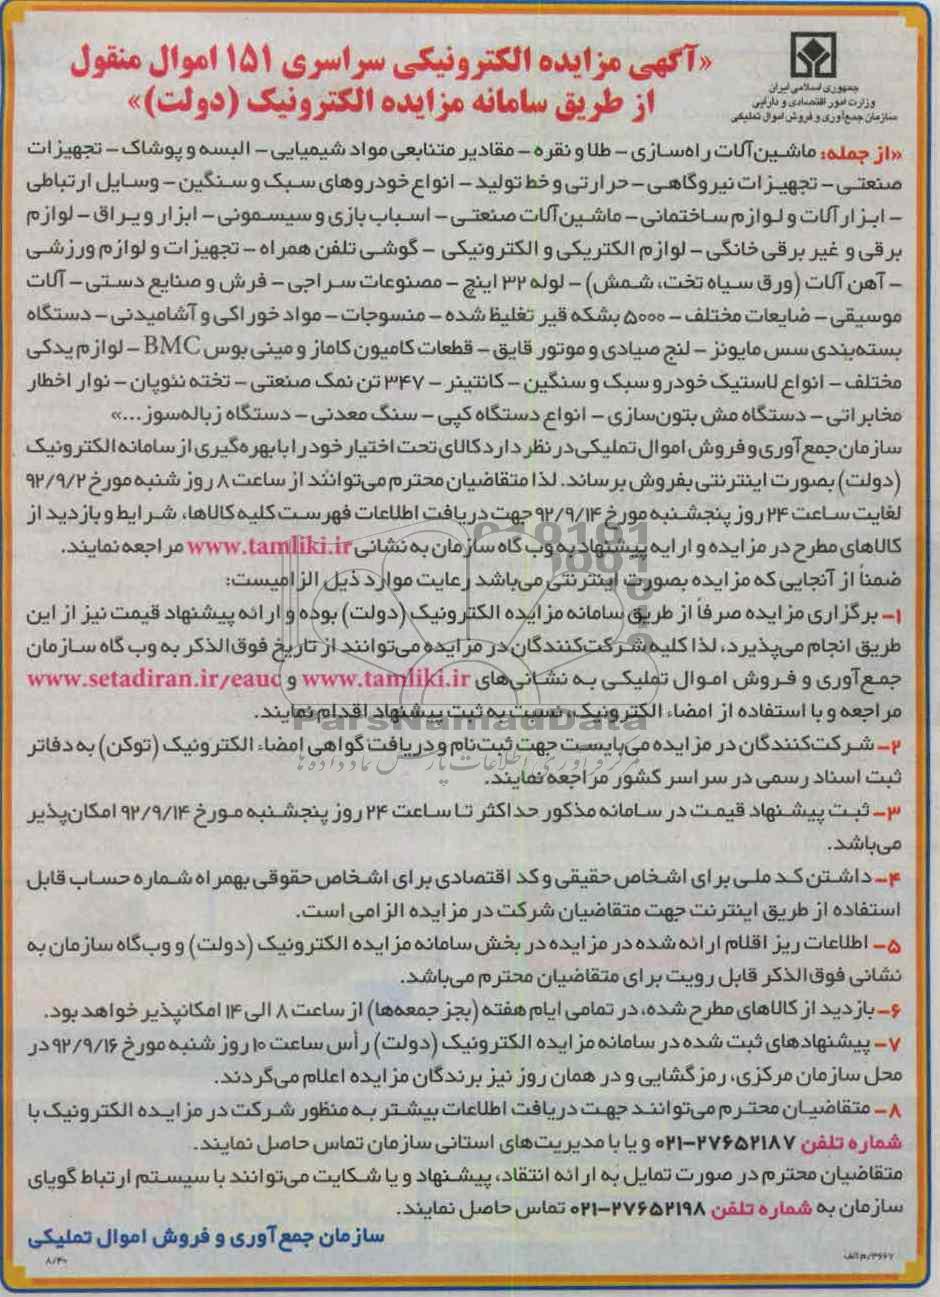 «آگهی مزایده الکترونیکی سراسری ۱۵۱ اموال منقول
از طریق سامانه مزایده الکترونیک (دولت)»
جمهوری اسلامی ایران
وزارت امور اقتصادی و دارایی
سازمان جمع‌آوری و فروش اموال تملیکی
«از جمله: ماشین‌آلات راه‌سازی – طلا و نقره – مقادیر متنابعی مواد شیمیایی – البسه و پوشاک – تجهیزات
صنعتی – تجهیزات نیروگاهی – حرارتی و خط تولید – انواع خودروهای سبک و سنگین – وسایل ارتباطی
– ابزارآلات و لوازم ساختمانی – ماشین‌آلات صنعتی – اسباب بازی و سیسمونی – ابزار و یراق – لوازم
برقی و غیر برقی خانگی – لوازم الکتریکی و الکترونیکی – گوشی تلفن همراه – تجهیزات و لوازم ورزشی
– آهن آلات (ورق سیاه تخت، شمش) – لوله ۳۲ اینچ – مصنوعات سراجی – فرش و صنایع دستی – آلات
موسیقی – ضایعات مختلف – ۵۰۰۰ بشکه قیر تغلیظ شده – منسوجات – مواد خوراکی و آشامیدنی – دستگاه
بسته‌بندی سس مایونز – لنج صیادی و موتور قایق – قطعات کامیون کاماز و مینی بوس BMC – لوازم یدکی
مختلف – انواع لاستیک خودرو سبک و سنگین – کانتینر – ۳۴۷ تن نمک صنعتی – تخته نئوپان – نوار اخطار
مخابراتی – دستگاه مش بتون‌سازی – انواع دستگاه کپی – سنگ معدنی – دستگاه زباله‌سوز...»
سازمان جمع‌آوری و فروش اموال تملیکی در نظر دارد کالای تحت اختیار خود را با بهره‌گیری از سامانه الکترونیک
(دولت) بصورت اینترنتی بفروش برساند. لذا متقاضیان محترم می‌توانند از ساعت ۸ روز شنبه مورخ ۹۲/۹/۲
لغایت ساعت ۲۴ روز پنجشنبه مورخ ۹۲/۹/۱۴ جهت دریافت اطلاعات فهرست کلیه کالاها، شرایط و بازدید از
کالاهای مطرح در مزایده و ارایه پیشنهاد به وب گاه سازمان به نشانی www.tamliki.ir مراجعه نمایند.
ضمناً از آنجایی که مزایده بصورت اینترنتی می‌باشد رعایت موارد ذیل الزامیست:
۱– برگزاری مزایده صرفاً از طریق سامانه مزایده الکترونیک (دولت) بوده و ارائه پیشنهاد قیمت نیز از این
طریق انجام می‌پذیرد، لذا کلیه شرکت‌کنندگان در مزایده می‌توانند از تاریخ فوق‌الذکر به وب گاه سازمان
جمع‌آوری و فروش اموال تملیکی به نشانی‌های www.tamliki.ir و www.setadiran.ir/eauc
مراجعه و با استفاده از امضاء الکترونیک، نسبت به ثبت پیشنهاد اقدام نمایند.
ParsNamadData
۲– شرکت‌کنندگان در مزایده می‌بایست جهت ثبت‌نام و دریافت گواهی امضاء الکترونیک (توکن) به دفاتر
ثبت اسناد رسمی در سراسر کشور مراجعه نمایند.
۳– ثبت پیشنهاد قیمت در سامانه مذکور حداکثر تا ساعت ۲۴ روز پنجشنبه مورخ ۹۲/۹/۱۴ امکان‌پذیر
می‌باشد.
۴– داشتن کد ملی برای اشخاص حقیقی و کد اقتصادی برای اشخاص حقوقی بهمراه شماره حساب قابل
استفاده از طریق اینترنت جهت متقاضیان شرکت در مزایده الزامی است.
۵– اطلاعات ریز اقلام ارائه شده در مزایده در بخش سامانه مزایده الکترونیک (دولت) و وب‌گاه سازمان به
نشانی فوق‌الذکر قابل رویت برای متقاضیان محترم می‌باشد.
۶– بازدید از کالاهای مطرح شده، در تمامی ایام هفته (بجز جمعه‌ها) از ساعت ۸ الی ۱۴ امکانپذیر خواهد بود.
۷– پیشنهادهای ثبت شده در سامانه مزایده الکترونیک (دولت) رأس ساعت ۱۰ روز شنبه مورخ ۹۲/۹/۱۶ در
محل سازمان مرکزی، رمزگشایی و در همان روز نیز برندگان مزایده اعلام می‌گردند.
۸– متقاضیان محترم می‌توانند جهت دریافت اطلاعات بیشتر به منظور شرکت در مزایده الکترونیک با
شماره تلفن ۲۷۶۵۲۱۸۷–۰۲۱ و یا با مدیریت‌های استانی سازمان تماس حاصل نمایند.
متقاضیان محترم در صورت تمایل به ارائه انتقاد، پیشنهاد و یا شکایت می‌توانند با سیستم ارتباط گویای
سازمان به شماره تلفن ۲۷۶۵۲۱۹۸–۰۲۱ تماس حاصل نمایند.
سازمان جمع‌آوری و فروش اموال تملیکی
۳۶۶۷/م الف